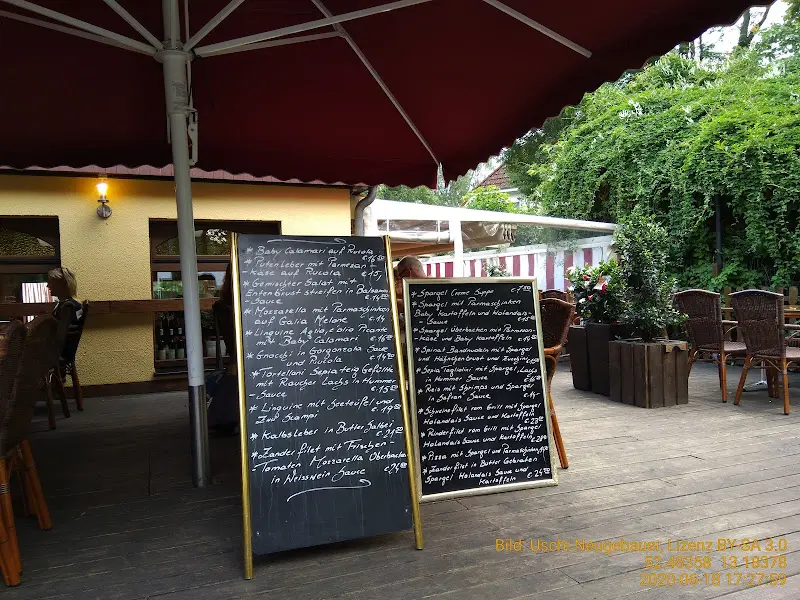 * Baby Calamari auf Rucola €16 50
* Putenleber mit Parmesan -
- Käse auf Rucola €15,-
* Gemischter Salat mit
Entenbrust streifen in Balsamico
- Sauce €14 50
* Mozzarella mit Parmaschinken
auf Galia Melone €14
* Linguine Aglio, e olio Picante
mit Baby Calamari €16 50
* Gnocchi in Gorgonzola Sauce
und Rucola €14 50
* Tortelloni Sepia teig Gefüllte
mit Raucher Lachs in Hummer
- Sauce €15 50
* Linguine mit Seeteufel und
Zwei Scampi €19 50
* Kalbsleber in Butter Salbei
€21 50
* Zander filet mit Frischen -
Tomaten Mozzarella Oberbacken
in Weisswein Sauce €24 50
* Spargel Creme Suppe €7 50
* Spargel mit Parmaschinken
Baby Kartoffeln und Holandais
- Sauce
* Spargel Überbacken mit Parmesan
Käse und Baby Kartoffeln €16 50
* Spinat Bandnudeln mit Spargel
und Hähnchenbrust und Zwiebeln
* Sepia Tagliolini mit Spargel, Lachs
in Hummer Sauce
* Reis mit Shrimps und Spargel
in Safran Sauce €15,-
* Schweinefilet vom Grill mit Spargel
Holandais Sauce und Kartoffeln
* Rinderfilet vom Grill mit Spargel
Holandais Sauce und Kartoffeln €28 50
* Pizza mit Spargel und Parmaschinken
* Zander filet in Butter Gebraten
Spargel Holandais Sauce und
Kartoffeln €24 50
Bild: Uschi Neugebauer, Lizenz BY-SA 3.0
2020-06-18 17:27:59